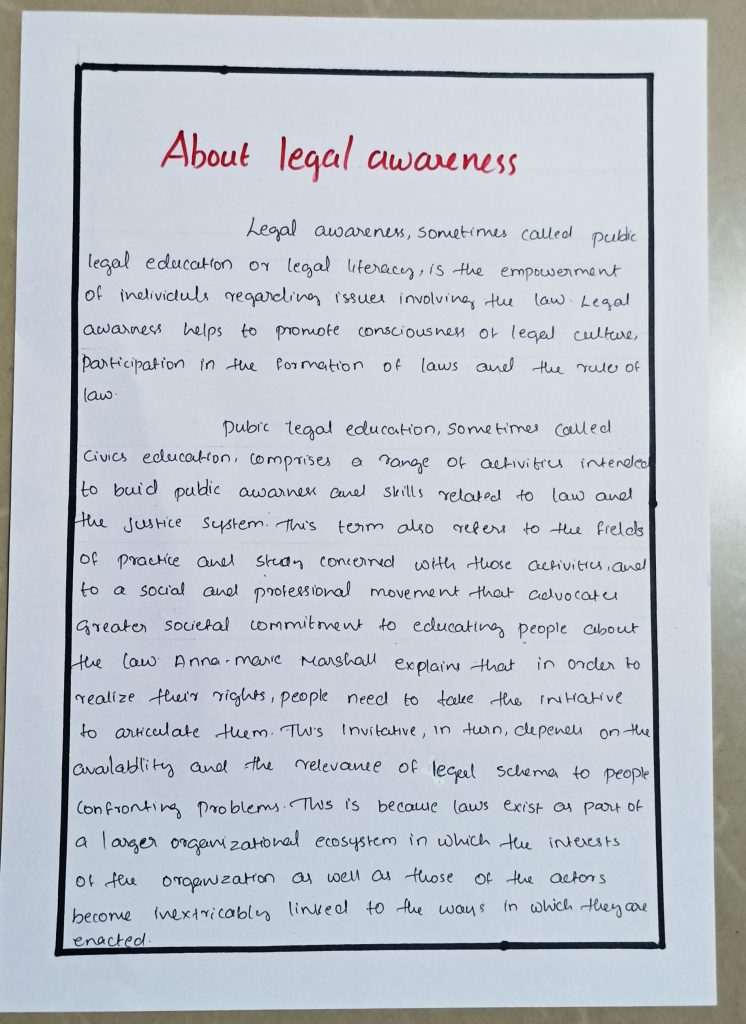 About legal awareness
Legal awareness, sometimes called public
legal education or legal literacy, is the empowerment
of individuls regarding issues involving the law. Legal
awarness helps to promote consciousness of legal culture,
participation in the formation of laws and the rule of
law.
Pubic legal education, sometimes called
Civics education, comprises a range of activities intended
to buid public awarness and skills related to law and
the justice system. This term also refers to the fields
of practice and study concerned with those activities, and
to a social and professional movement that advocates
greater societal commitment to educating people about
the law. Anna-marie Marshall explains that in order to
realize their rights, people need to take the initiative
to articulate them. This Invitative, in turn, depends on the
availablity and the relevance of legal schema to people
confronting problems. This is because laws exist as part of
a larger organizational ecosystem in which the interests
of the organization as well as those of the actors
become inextricably linked to the ways in which they are
enacted.